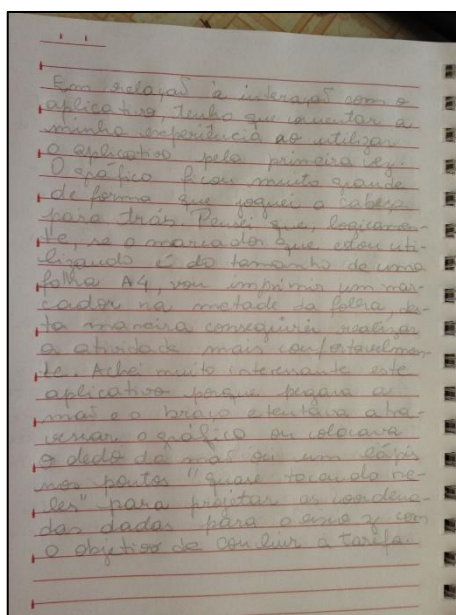 Em relação à interação com o
aplicativo, tenho que comentar a
minha experiência ao utilizar
o aplicativo pela primeira vez.
O gráfico ficou muito grande
de forma que joguei a cabeça
para trás. Pensei que, logicamen-
te, se o marcador que estou uti-
lizando é do tamanho de uma
folha A4, vou imprimir um mar-
cador na metade da folha, des-
ta maneira conseguirei realizar
a atividade mais confortavelmen-
te. Achei muito interessante este
aplicativo porque pegava a
mão e o braço e tentava atra-
vessar o gráfico ou colocava
o dedo da mão ou um lápis
nos pontos "quase tocando ne-
les" para projetar as coordena-
das dadas para o eixo z com
o objetivo de concluir a tarefa.